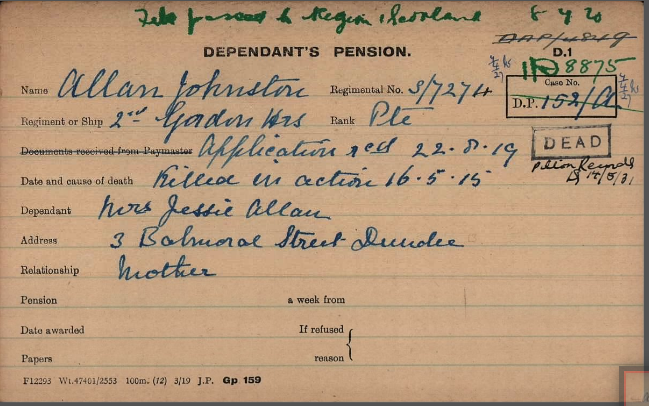 File passed to Region, Scotland 8 4 20
DEPENDANT'S PENSION. D.1
8875
Name Allan Johnston Regimental No. S/7274 Case No.
D.P. 152/A.
Regiment or Ship 2nd Gordon Hrs Rank Pte
Documents received from Paymaster Application recd 22.8.19
DEAD
Date and cause of death Killed in action 16.5.15
Dependant Mrs Jessie Allan
Address 3 Balmoral Street Dundee
Relationship Mother
Pension a week from
Date awarded If refused
Papers reason
F12293 Wt.47401/2553 100m. (12) 3/19 J.P. Gp 159